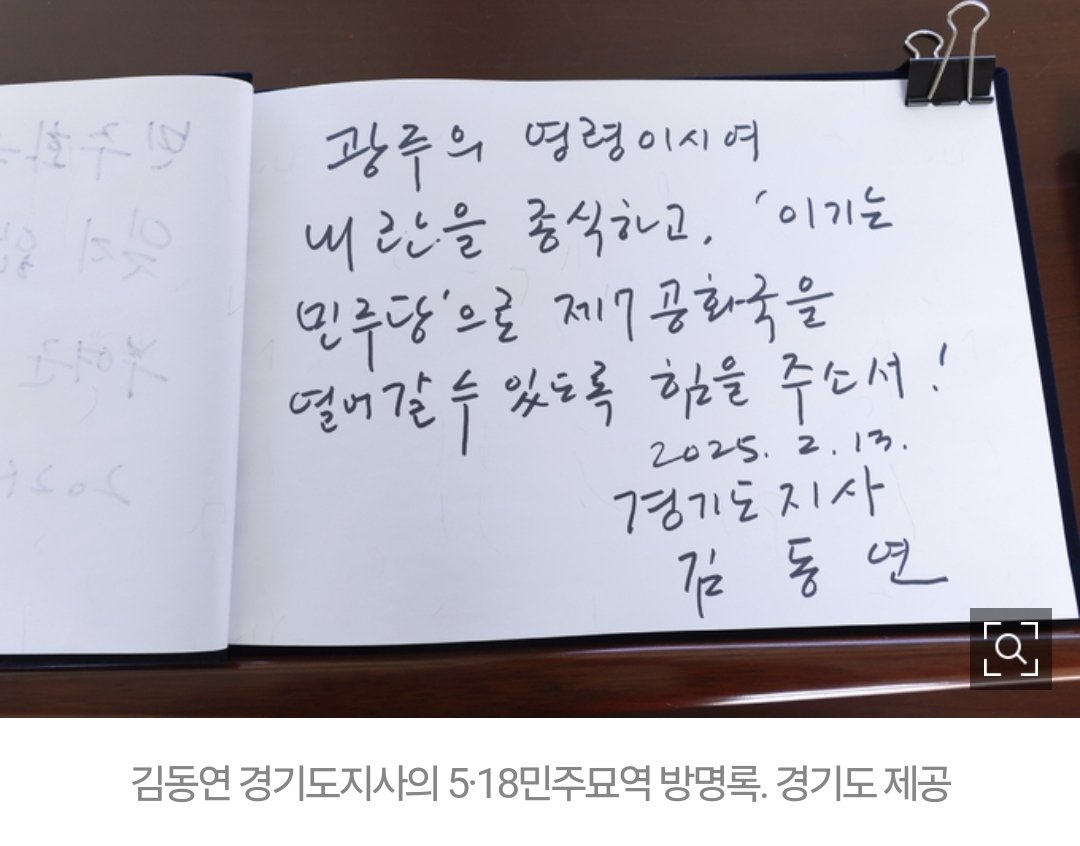 광주의 영령이시여
내란을 종식하고, '이기는
민주당'으로 제7공화국을
열어갈 수 있도록 힘을 주소서!
2025. 2. 13.
경기도지사
김 동 연
김동연 경기도지사의 5·18민주묘역 방명록. 경기도 제공